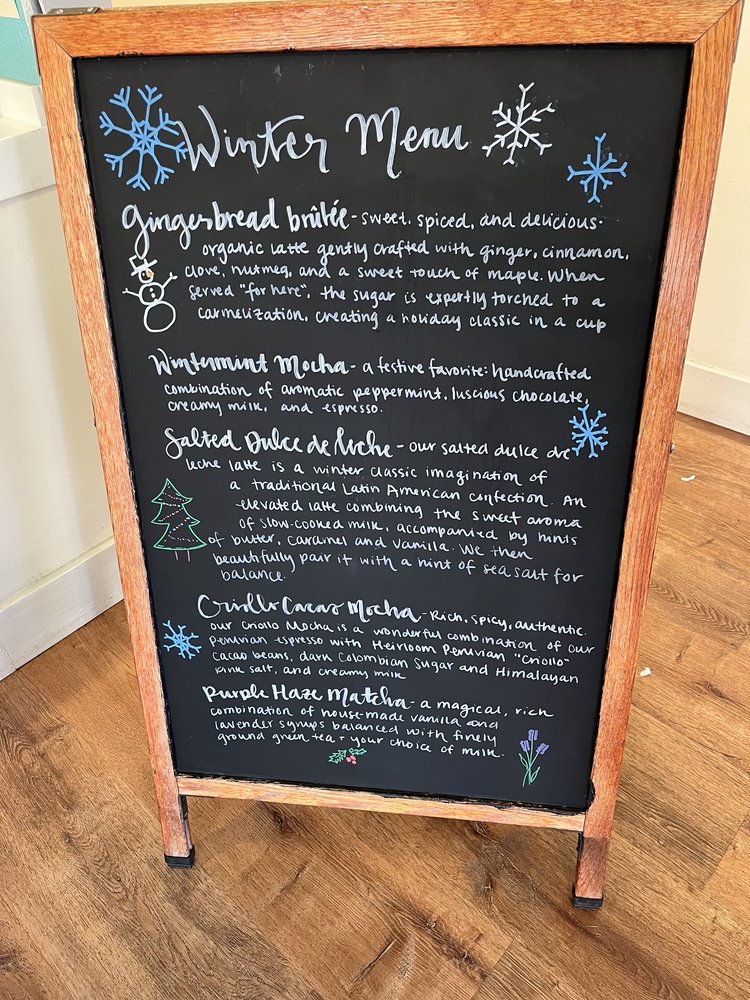 Winter Menu
Gingerbread brûlée - sweet, spiced, and delicious.
organic latte gently crafted with ginger, cinnamon,
clove, nutmeg, and a sweet touch of maple. When
served "for here", the sugar is expertly torched to a
carmelization, creating a holiday classic in a cup
Wintermint Mocha - a festive favorite: handcrafted
combination of aromatic peppermint, luscious chocolate,
creamy milk, and espresso.
Salted Dulce de leche - our salted dulce de
leche latte is a winter classic imagination of
a traditional Latin American confection. An
elevated latte combining the sweet aroma
of slow-cooked milk, accompanied by hints
of butter, caramel and vanilla. We then
beautifully pair it with a hint of sea salt for
balance.
Criollo Cacao Mocha - Rich, spicy, authentic.
our Criollo Mocha is a wonderful combination of our
Peruvian espresso with Heirloom Peruvian "Criollo"
Cacao beans, dark Colombian Sugar and Himalayan
Pink salt, and creamy milk
Purple Haze Matcha - a magical, rich
combination of house-made vanilla and
lavender syrups balanced with finely
ground green tea + your choice of milk.